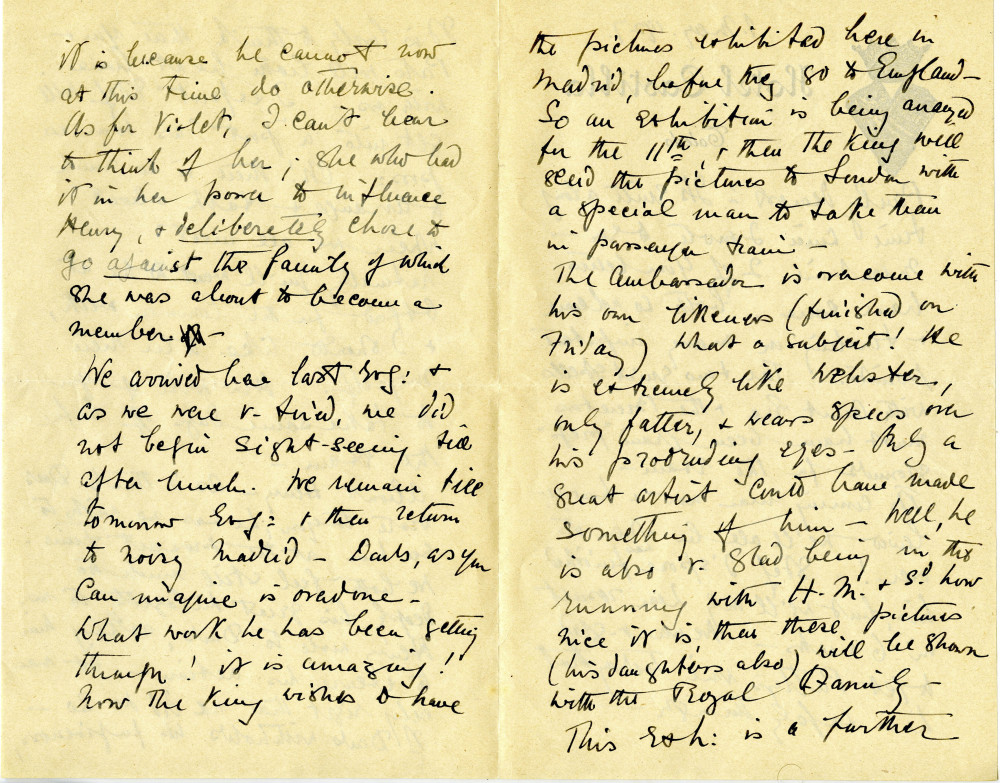 it is because he cannot now
at this time do otherwise.
As for Violet, I can't bear
to think of her; she who had
it in her power to influence
Henry, & deliberately chose to
go against the family of which
she was about to become a
member –
We arrived here last Evg: &
as we were v. tired, we did
not begin sight-seeing till
after lunch. We remain till
tomorrow Evg: & then return
to noisy Madrid – as you
can imagine is overdone –
What work he has been getting
through! it is amazing!
Now the King wishes to have
the pictures exhibited here in
Madrid, before they go to England –
So an exhibition is being arranged
for the 11th, & then the King will
send the pictures to London with
a special man to take them
in passenger train –
The Ambassador is overcome with
his own likeness (finished on
Friday) What a subject! He
is extremely like Webster,
only fatter, & wears specs over
his protruding eyes – Only a
great artist could have made
something of him – Well, he
is also v. glad being in the
running with H.M. & sd how
nice it is, that these pictures
(his daughters also) will be shown
with the Royal Family –
This Exh: is a further